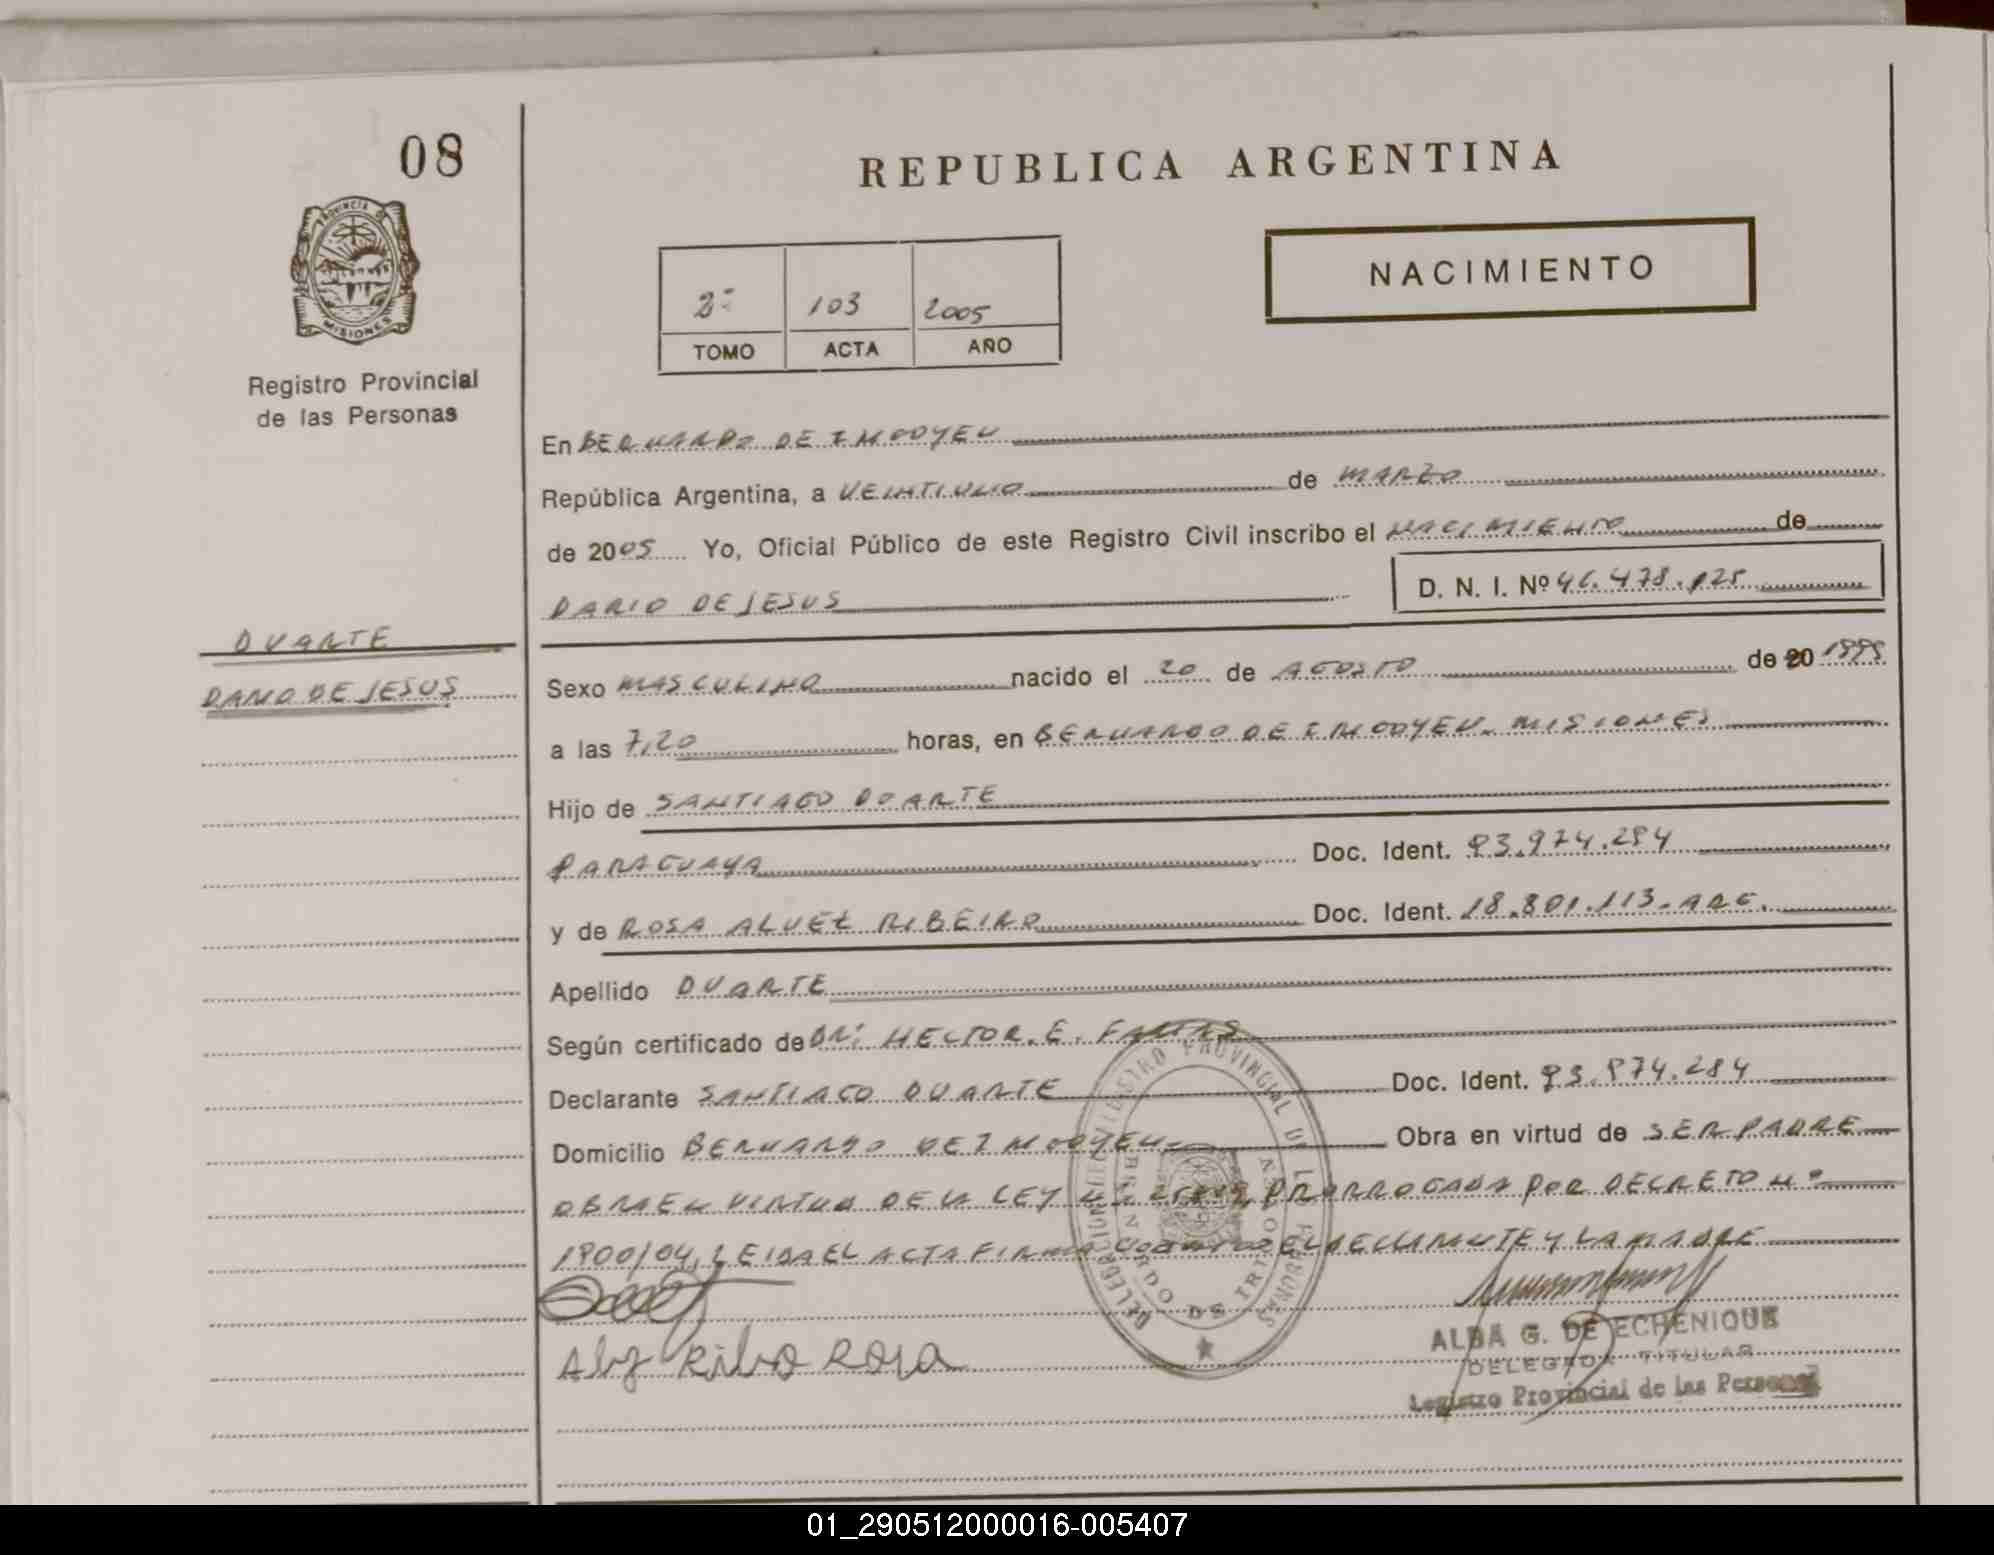 08
PROVINCIA DE
MISIONES
Registro Provincial
de las Personas
REPUBLICA ARGENTINA
NACIMIENTO
2º 103 2005
TOMO ACTA AÑO
En BERNARDO DE IRIGOYEN
República Argentina, a VEINTIUNO de MARZO
de 2005 Yo, Oficial Público de este Registro Civil inscribo el NACIMIENTO de
DARIO DE JESUS D. N. I. Nº 46.478.125
DUARTE
DARIO DE JESUS
Sexo MASCULINO nacido el 20 de AGOSTO de 20 1999
a las 7,20 horas, en BERNARDO DE IRIGOYEN. MISIONES
Hijo de SANTIAGO DUARTE
PARAGUAYA Doc. Ident. 93.974.284
y de ROSA ALVEZ RIBEIRO Doc. Ident. 18.801.113. ARG.
Apellido DUARTE
Según certificado de DR: HECTOR. E. FARIAS
Declarante SANTIAGO DUARTE Doc. Ident. 93.974.284
Domicilio BERNARDO DE IRIGOYEN Obra en virtud de SER PADRE
OBRA EN VIRTUD DE LA LEY Nº PRORROGADA POR DECRETO Nº
1900/04, LEIDA EL ACTA FIRMA EL DECLARANTE Y LA MADRE
Rosa
ALBA G. DE ECHENIQUE
DELEGADA TITULAR
Registro Provincial de las Personas
01_290512000016-005407